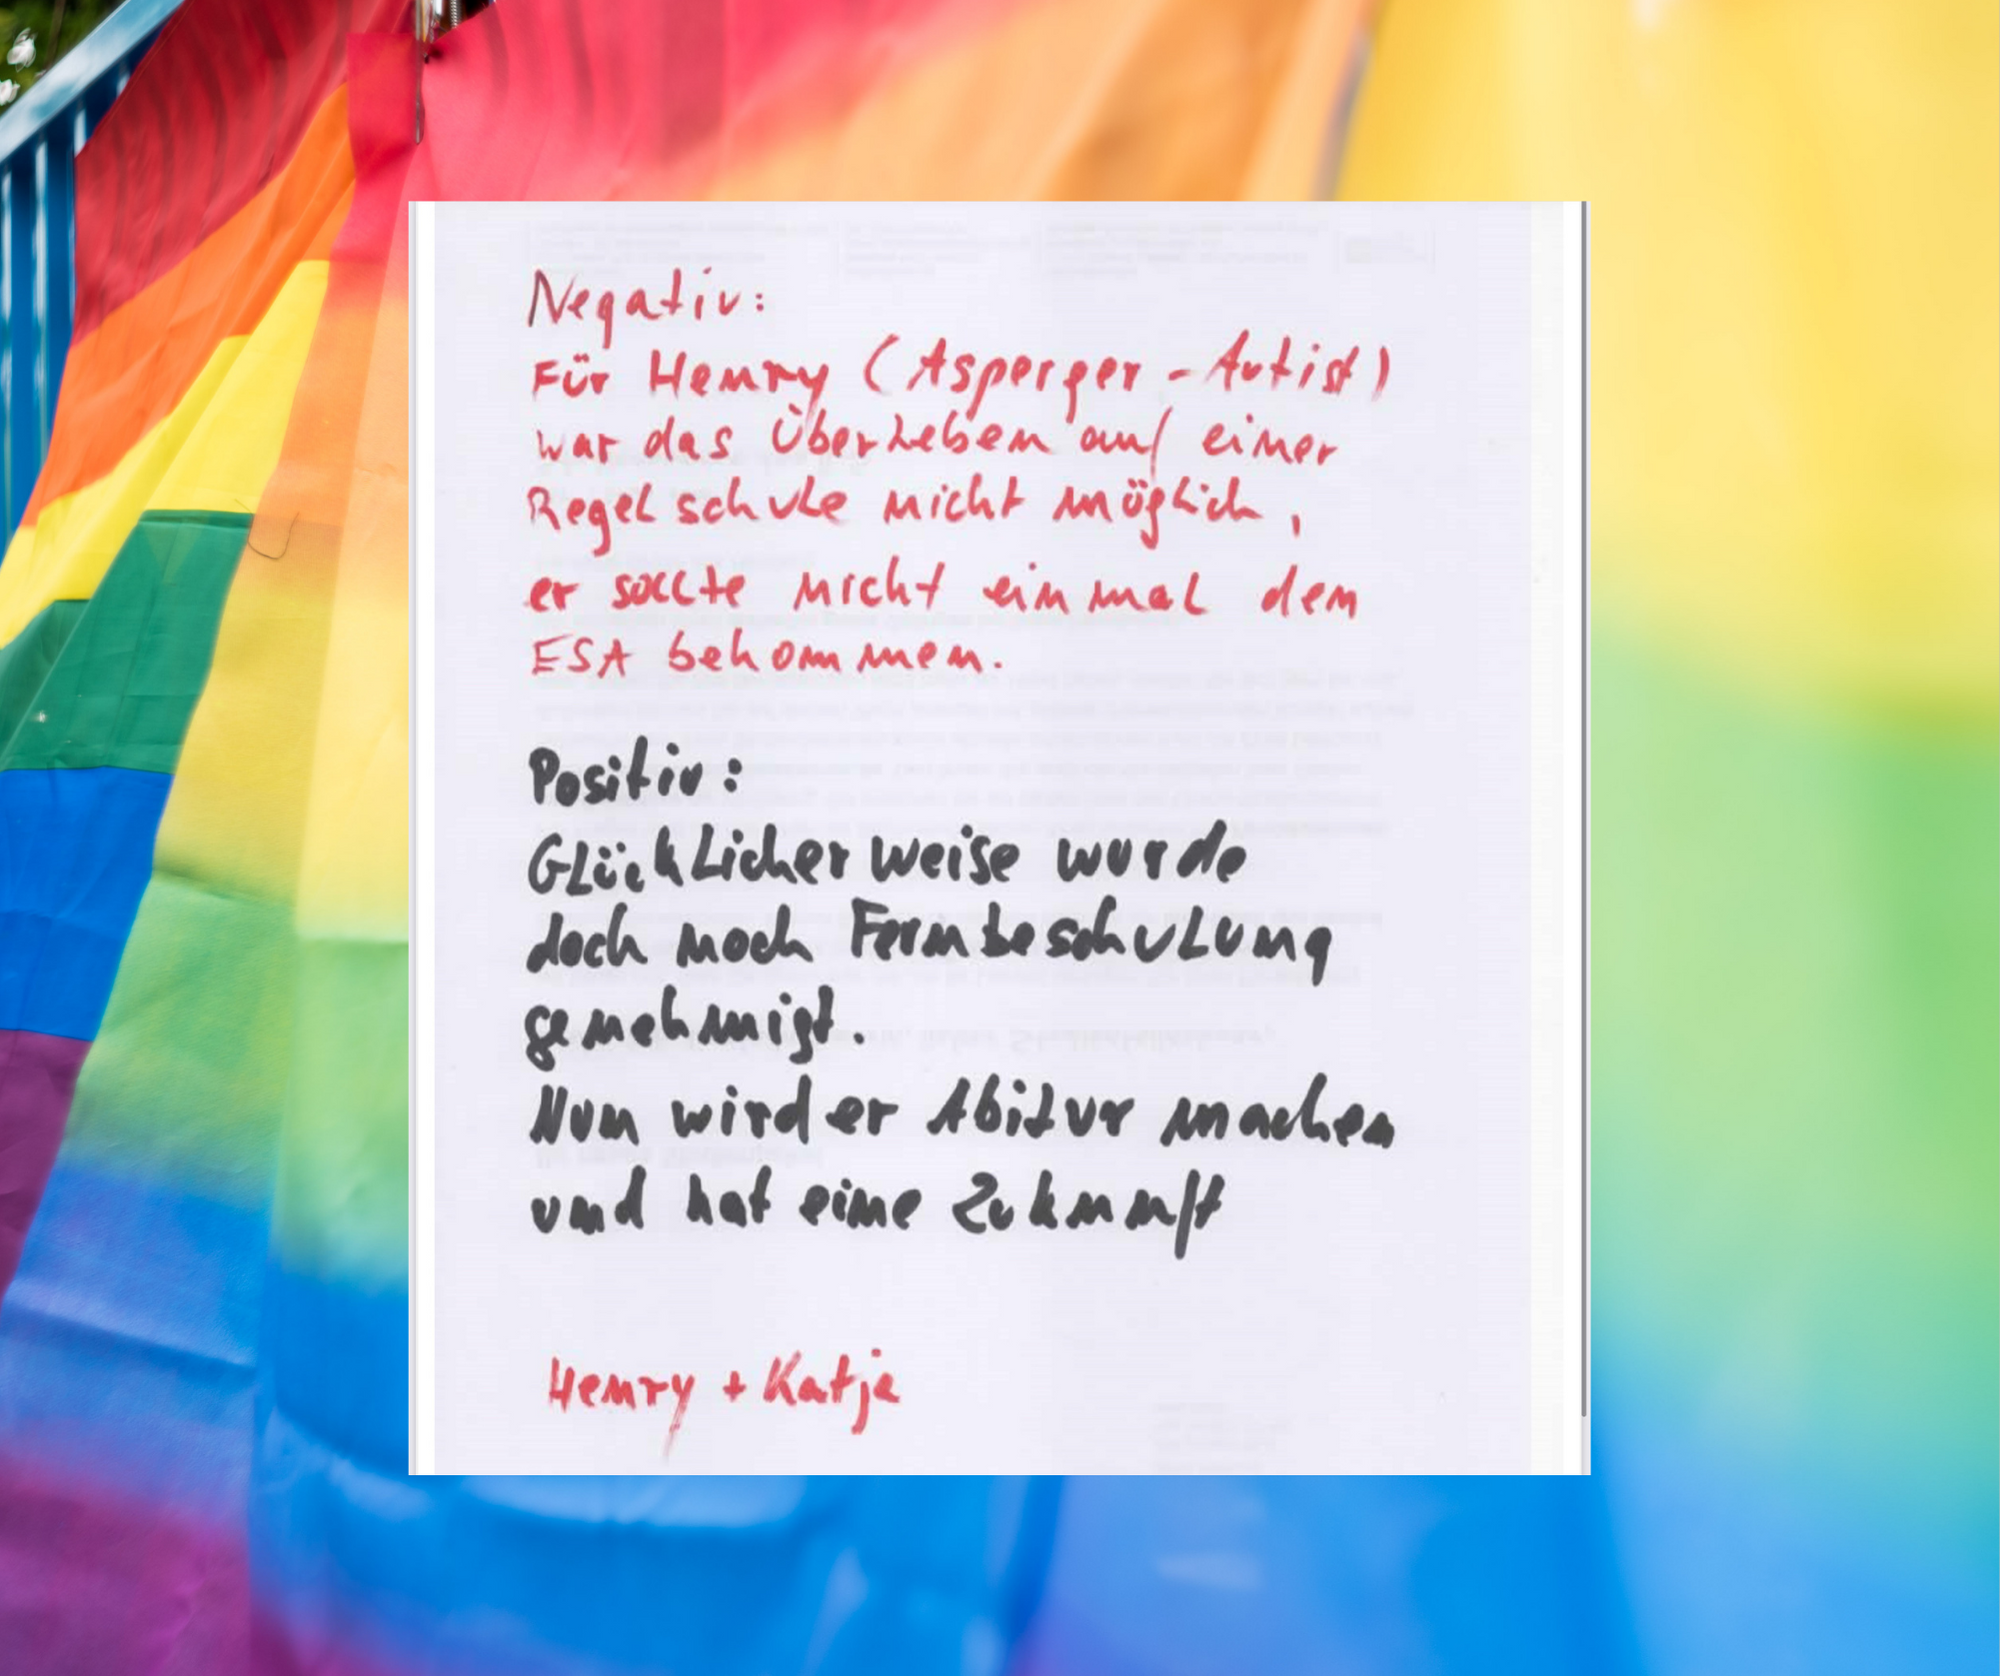 Negativ:
Für Henry (Asperger-Autist)
war das Überleben auf einer
Regelschule nicht möglich,
er sollte nicht einmal den
ESA bekommen.
Positiv:
Glücklicherweise wurde
doch noch Fernbeschulung
genehmigt.
Nun wird er Abitur machen
und hat eine Zukunft
Henry + Katja